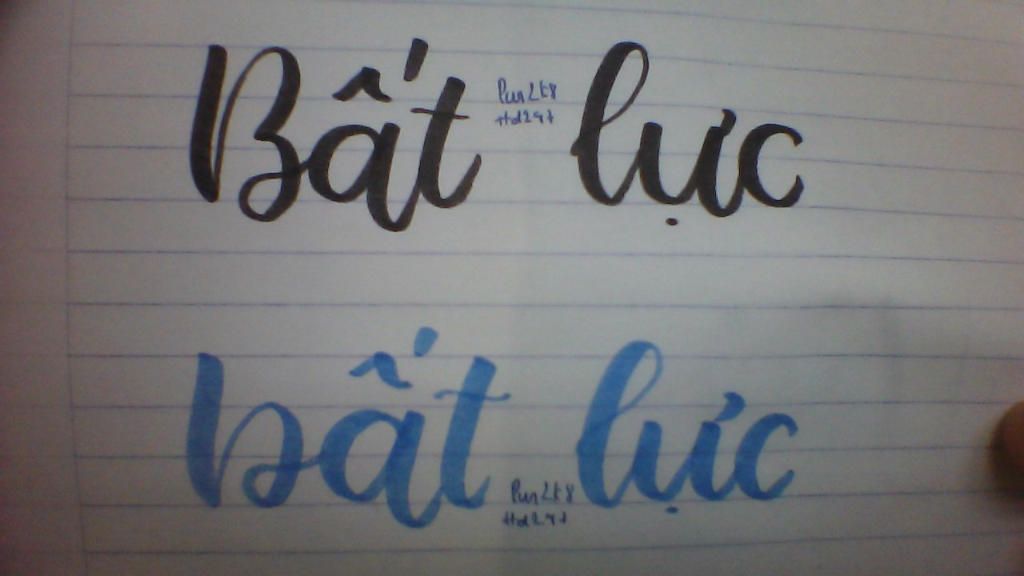 Bất lực
Pun2k8
Hd2q7
bất lực
Pun2k8
Hd2q7